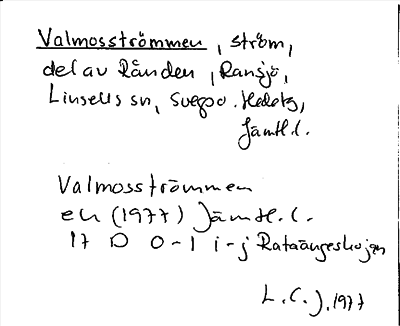 Valmosströmmen, ström,
del av Rånden, Ransjö,
Linsells sn, Svegs o. Hedets,
Jämtl.l.
Valmosströmmen
ek (1977) Jämtl. l.
17 D 0-1 i-j Rataängeskojan
L.C.J. 1977